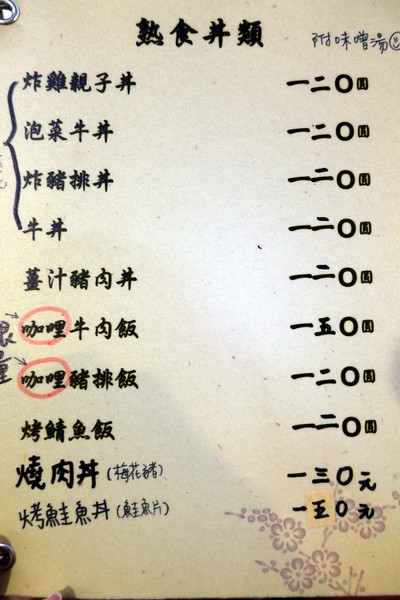 熟食丼類
附味噌湯
炸雞親子丼 一二〇圓
泡菜牛丼 一二〇圓
炸豬排丼 一二〇圓
牛丼 一二〇圓
薑汁豬肉丼 一二〇圓
咖哩牛肉飯 一五〇圓
咖哩豬排飯 一二〇圓
烤鯖魚飯 一二〇圓
燒肉丼(梅花豬) 一三〇元
烤鮭魚丼(鮭魚片) 一五〇元